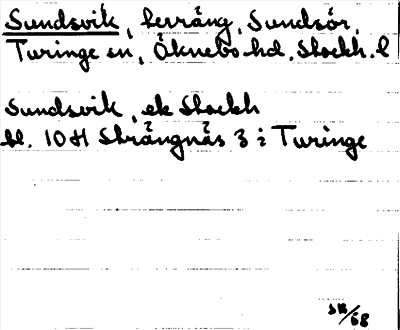 Sundsvik, herrgång, Sundsör,
Turinge sn, Öknebo hd, Stockh. l
Sundsvik, ek Stockh
bl. 10H Strängnäs 3 i Turinge
/68